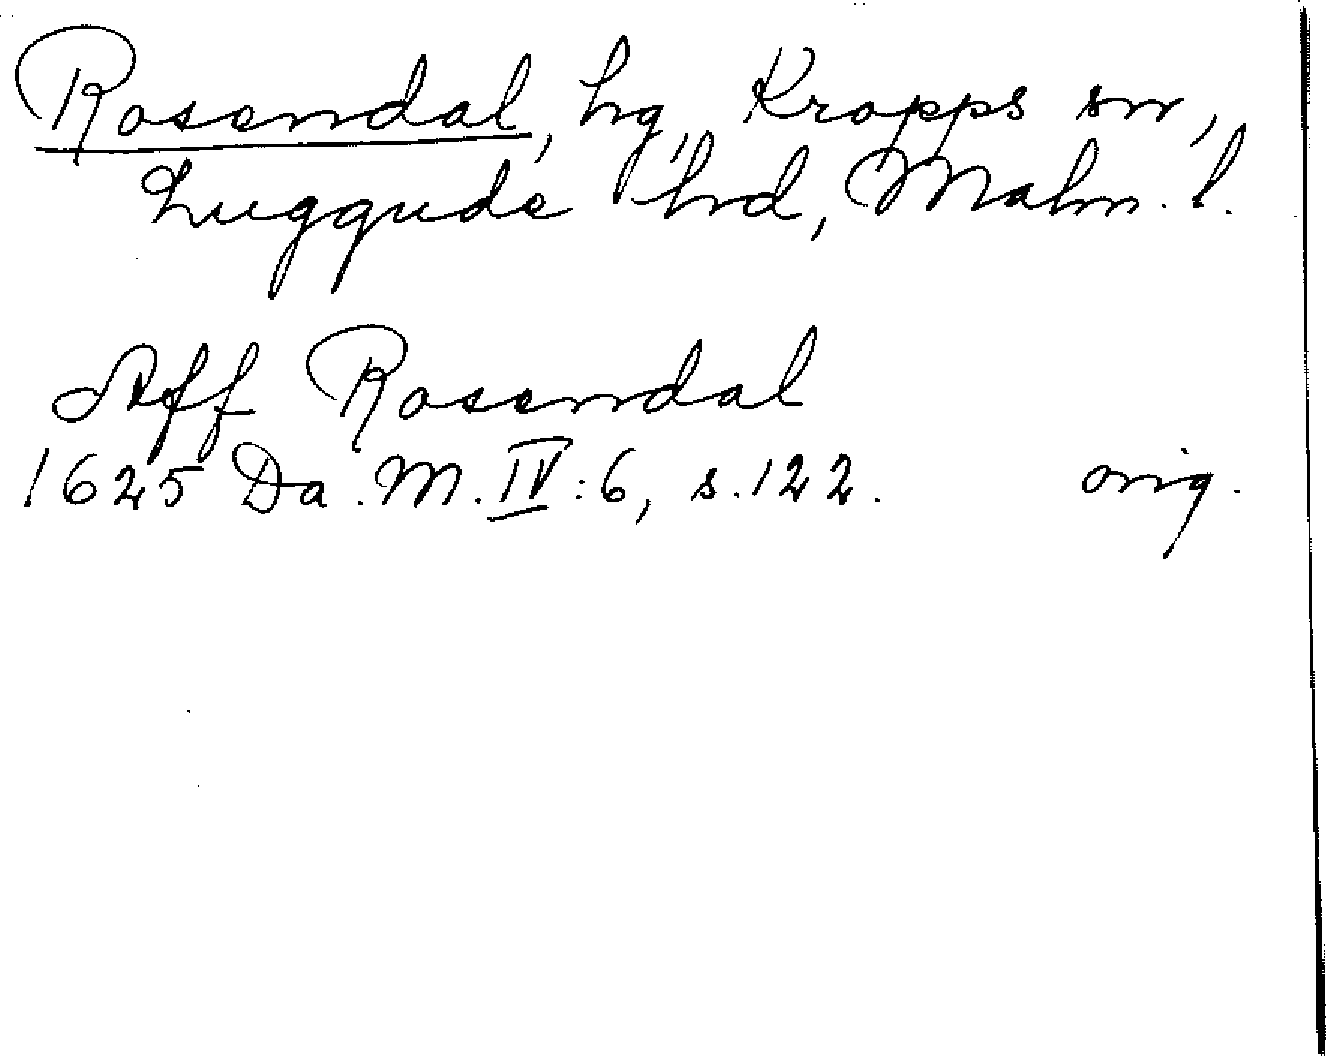 Rosendal, hg, Kropps sn,
Luggude hrd, Malm. l.
Aff Rosendal
1625 Da. M. IV:6, s. 122. orig.